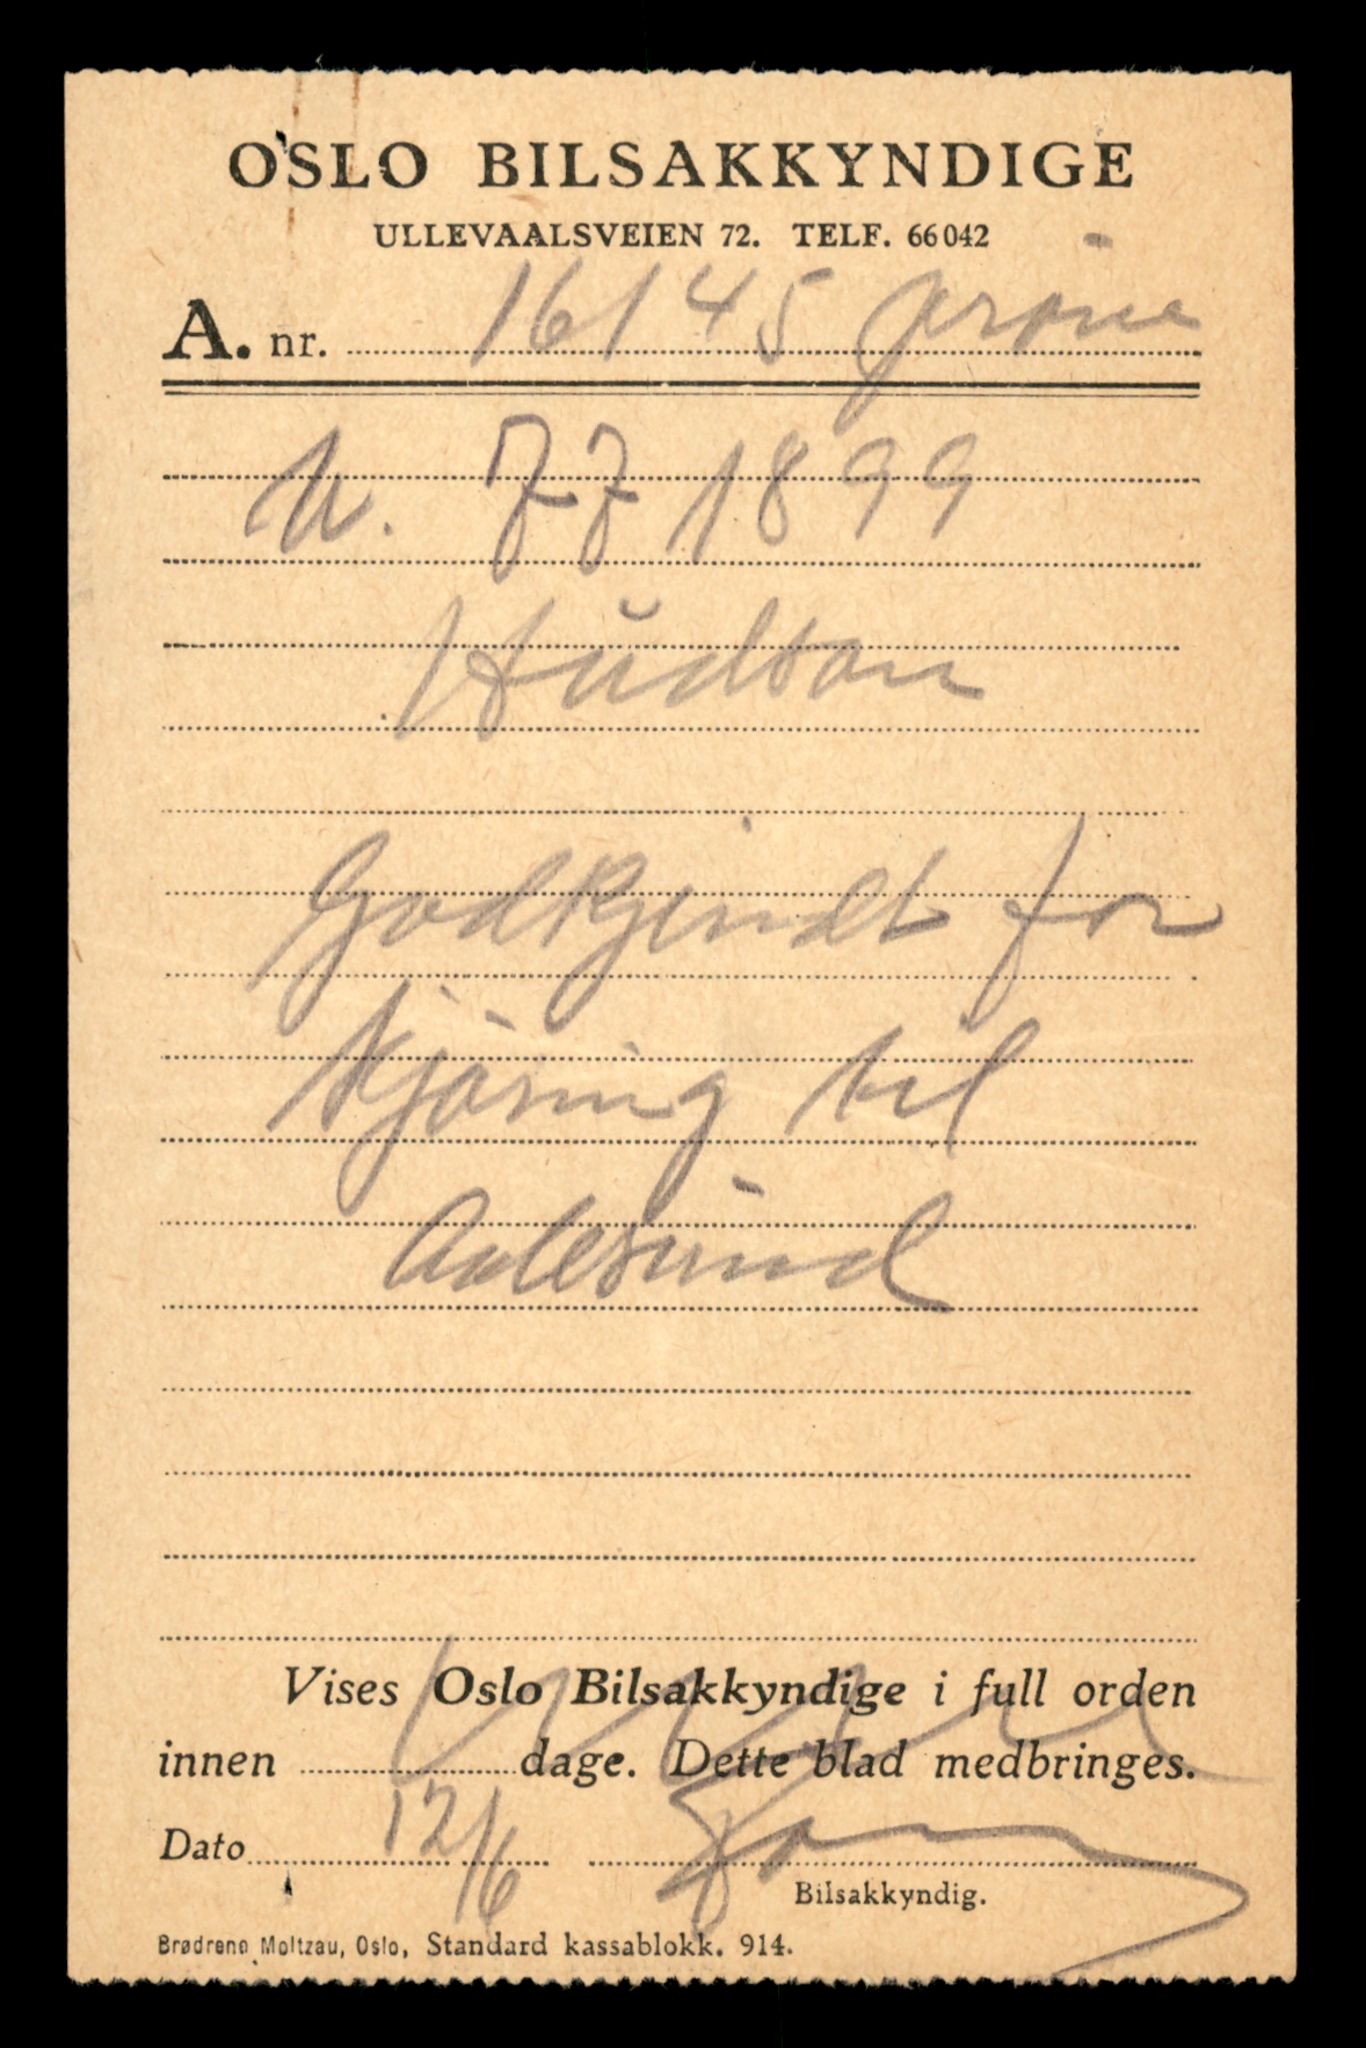 OSLO BILSAKKYNDIGE
ULLEVAALSVEIEN 72. TELF. 66042
A. nr. 16145 grøne
N. 771899
Hudson
Godkjendt for
kjøring til
Aalesund
Vises Oslo Bilsakkyndige i full orden
innen dage. Dette blad medbringes.
Dato 12/6
Bilsakkyndig.
Brødrene Moltzau, Oslo, Standard kassablokk. 914.